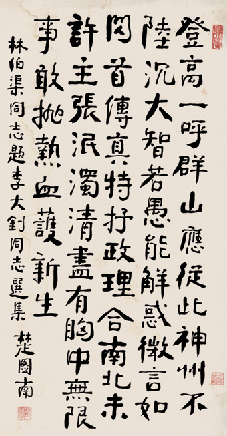 登高一呼群山應從此神州不
陸沉大智若愚能解惑微言如
閃首傳真特抒政理合南北未
許主張泯濁清盡有胸中無限
事敢拋熱血護新生
林伯渠同志題李大釗同志選集 楚圖南